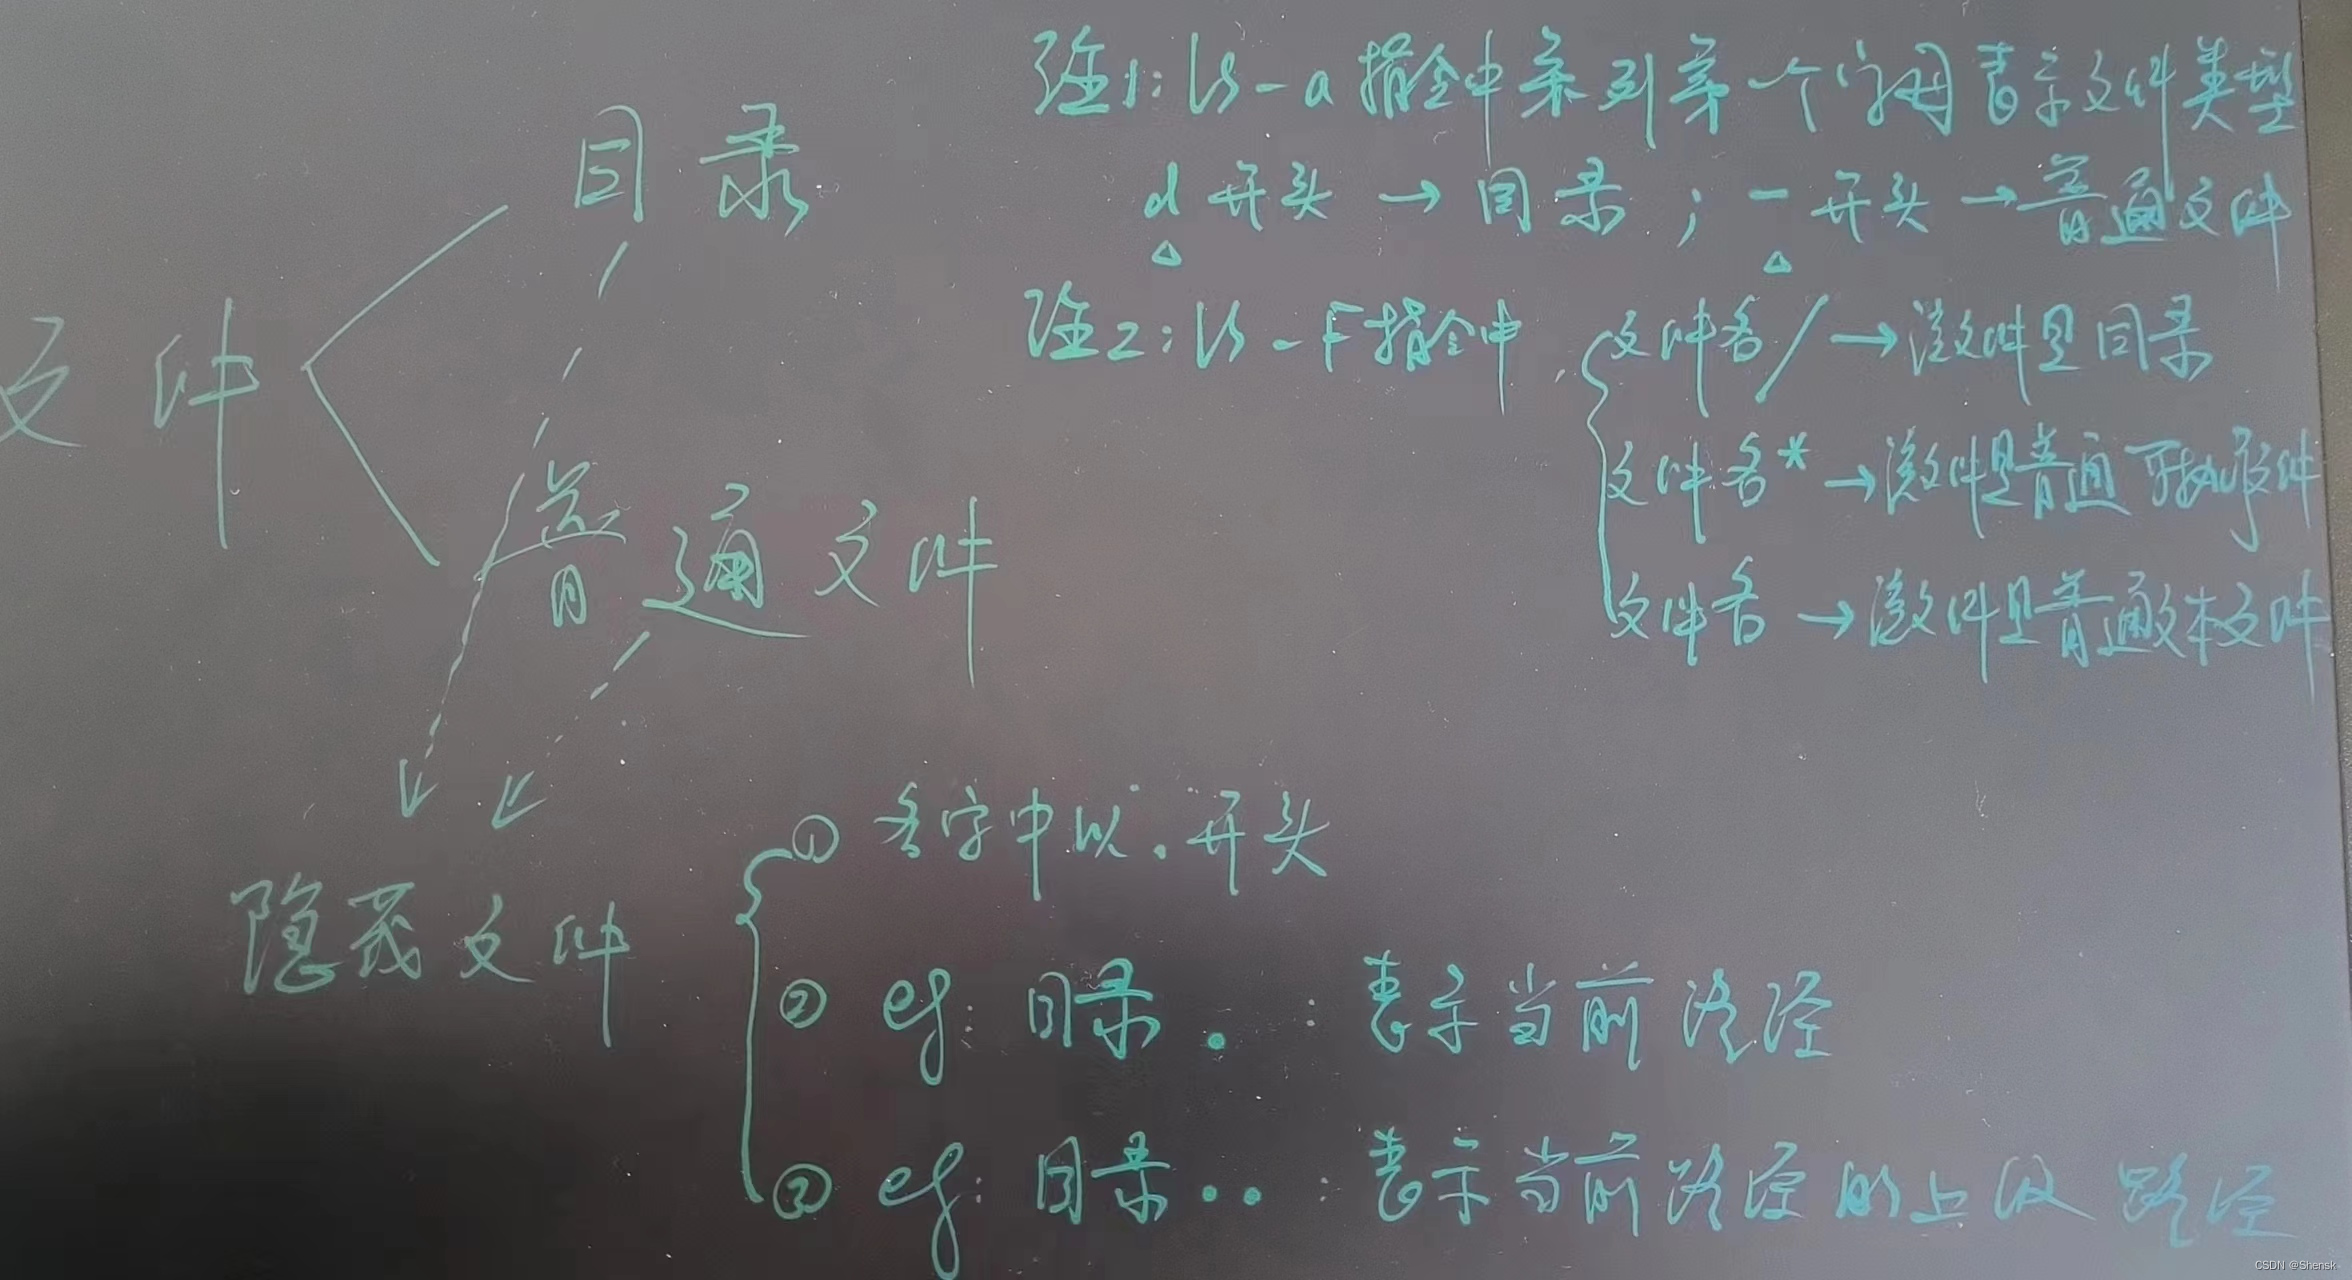 注1:ls-a 指令中第列第一个字母表示文件类型
d 开头 → 目录 ; - 开头 → 普通文件
注2:ls-F指令中
文件名/ → 该文件是目录
文件名* → 该文件是普通可执行文件
文件名 → 该文件是普通文本文件
文件
目录
普通文件
隐藏文件
① 名字中以.开头
② eg: 目录 . : 表示当前路径
③ eg: 目录 .. : 表示当前路径的上级路径
CSDN @Shensk